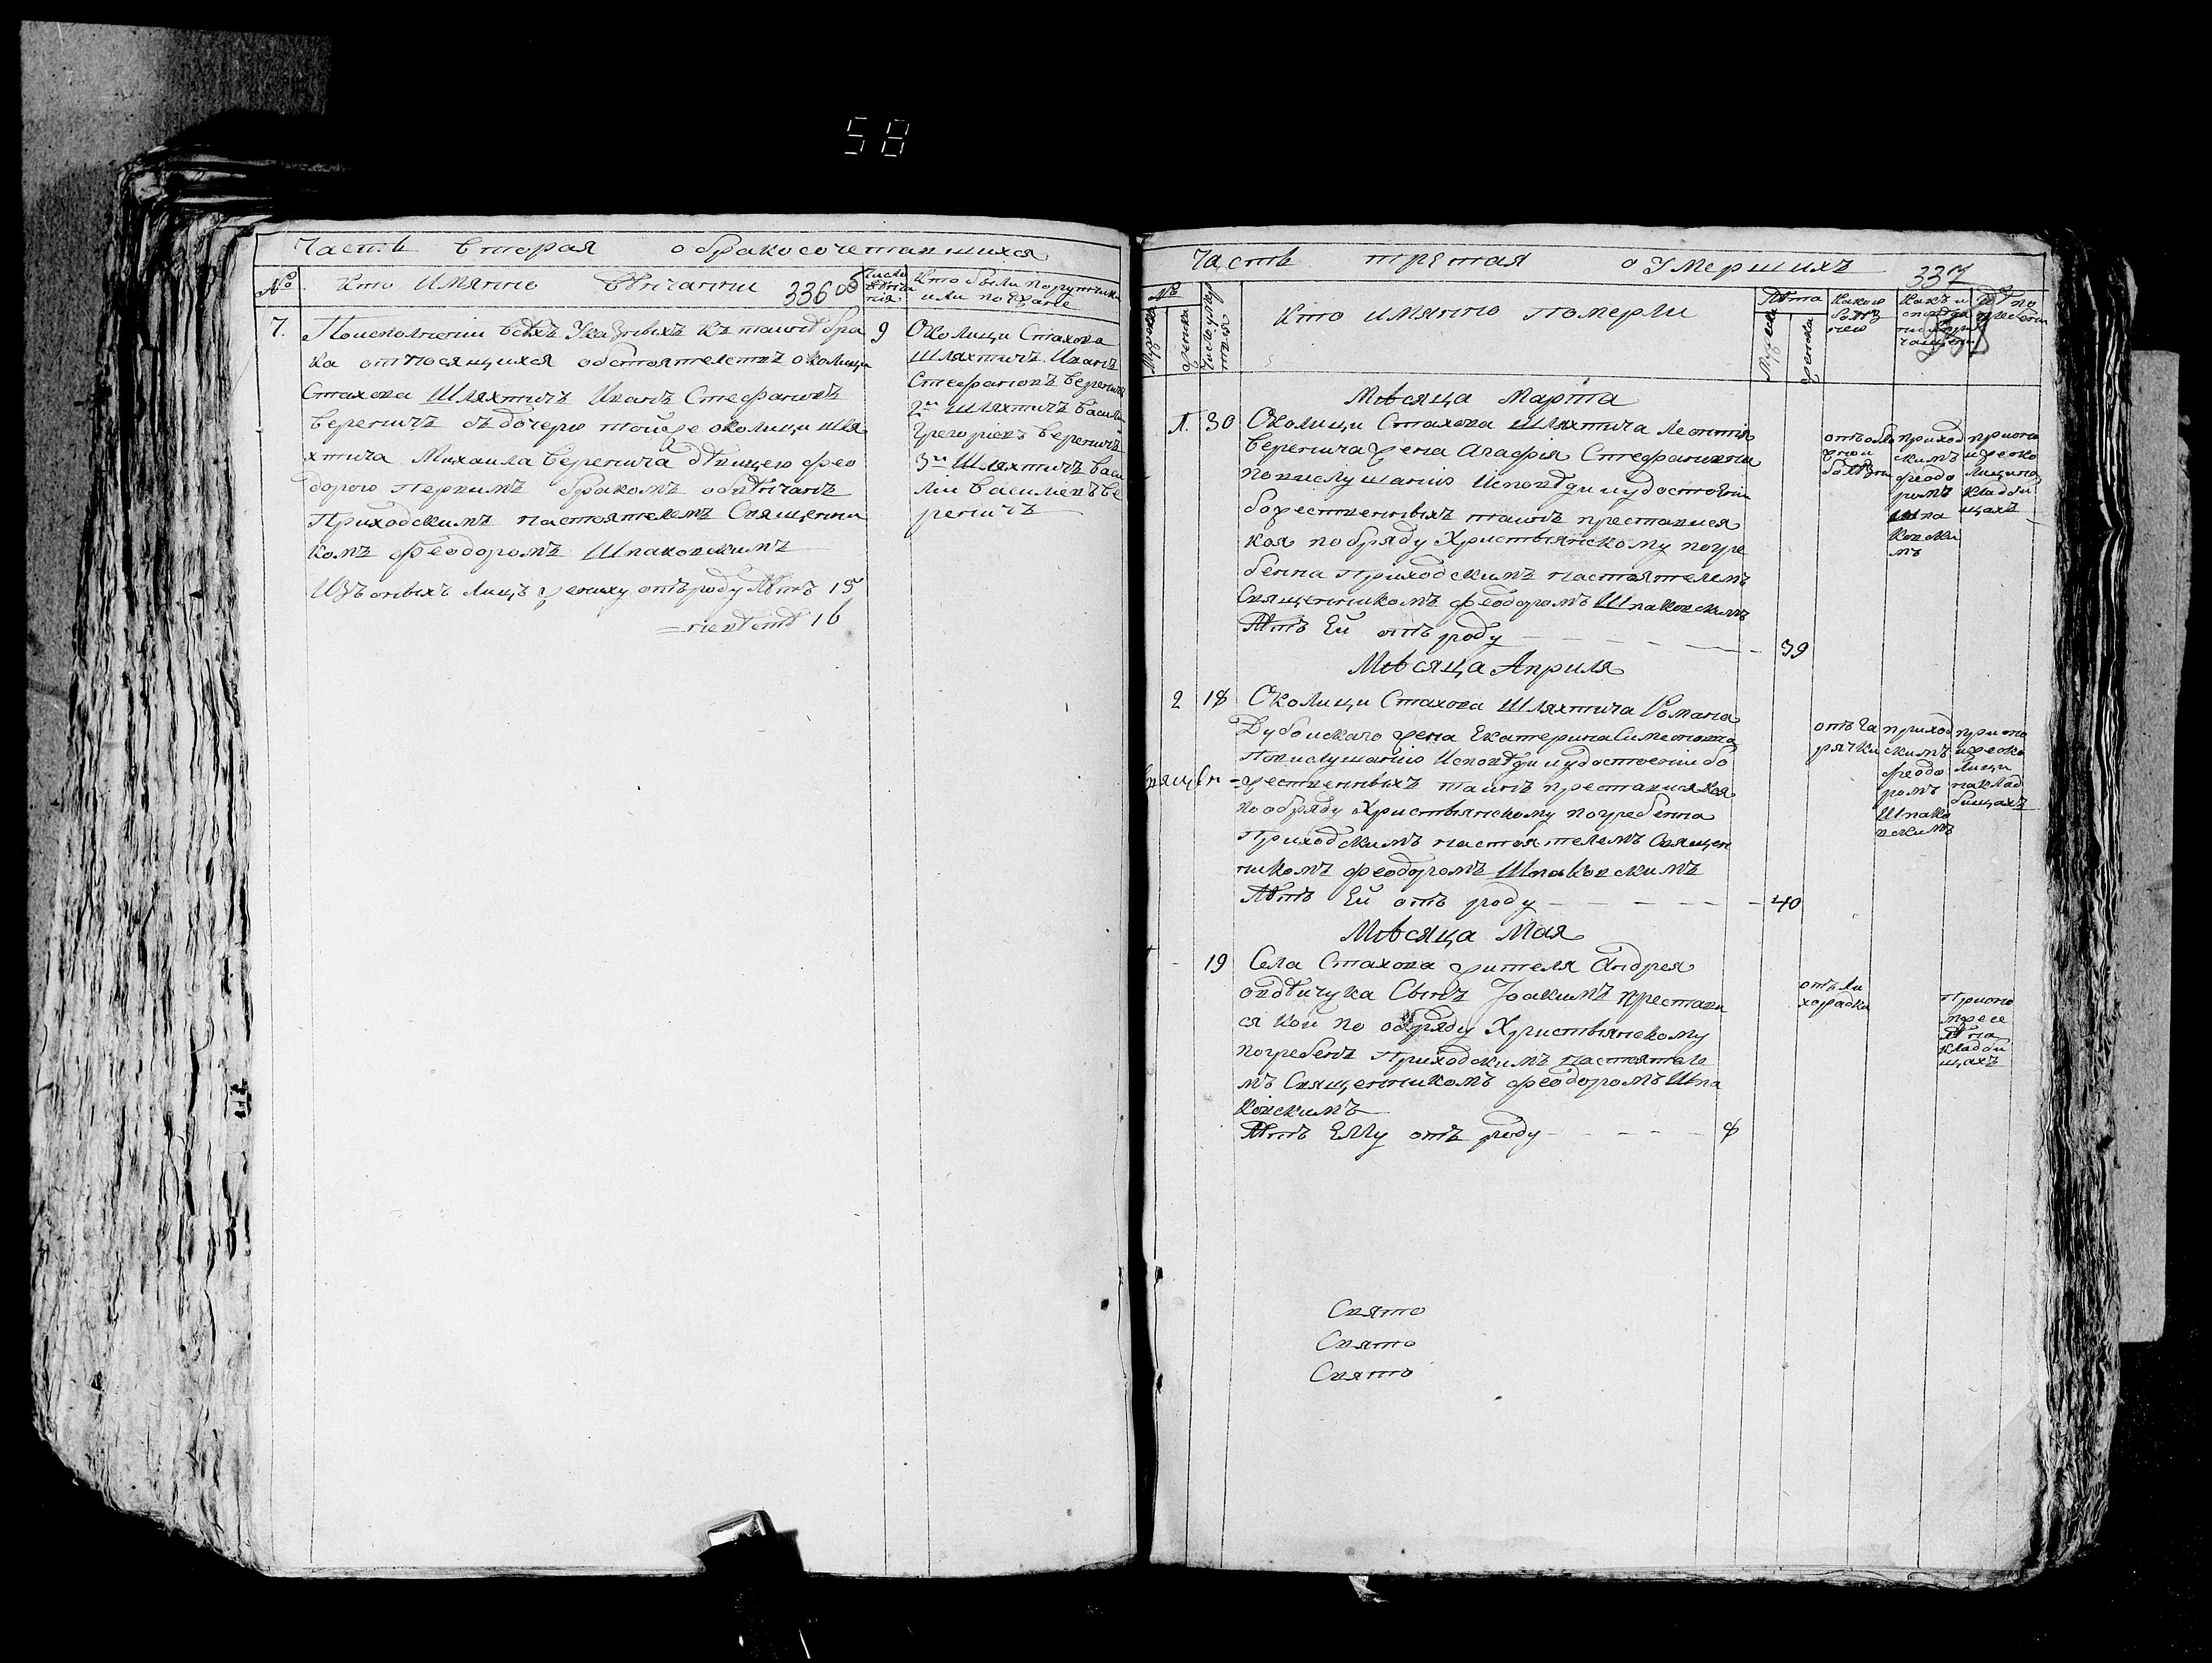 58
Часть вторая о бракосочетавшихся
№
Кто имянно вѣнчанни
336 об
Число вѣнча
нія
Кто были поручики
или по
7.
По исполненіи всѣхъ указныхъ къ таинѣ бра
ка относящихся обстоятелствъ околици
Стахова Шляхтичъ Иванъ Стефановъ
Вереничъ зъ дочерю тойже околици шля
хтича Михаила Веренича дѣвицею Фео
дорою первимъ бракомъ обвѣнчанъ
Приходскимъ настоятелемъ Священни
комъ Феодоромъ Шпаковскимъ
Изъ оныхъ лицъ жениху отъ роду лѣтъ 15
невѣстѣ 16
9
Околици Стахова
Шляхтичъ Иванъ
Стефановъ Вереничъ
2й Шляхтичъ Васили
Григоріевъ Вереничъ
3й Шляхтичъ Васи
лій Василіевъ Ве
реничъ
Часть третая о умершихъ
337
№
Мужеска
женска
Число умер
твія
Кто имянно померли
Лѣта
Мужеска
женска
Какою
болѣз
нею
Какъ и
Гдѣ по
Мѣсяца Марта
1. 30
Околици Стахова Шляхтича Леонтія
Веренича жена Агафія Стефановна
по вислушанію исповѣди и удостоеніи
божественныхъ таинъ преставися
коя по обряду Христіянскому погре
бенна Приходскимъ настоятелемъ
Священникомъ Феодоромъ Шпаковскимъ
Лѣтъ Ей отъ роду
39
болѣзни
приход
скимъ
Феодо
ромъ
Шпа
ковски
мъ
при оно
й же око
лици на
кладби
щахъ
Мѣсяца Апрыля
2 18
Околици Стахова Шляхтича Романа
Дубоискаго жена Екатерина Симеоновна
По вислушанію исповѣди и удостоеніи бо
жественныхъ таинъ преставися коя
по обряду Христіянскому погребенна
Приходскимъ настоятелемъ Священ
никомъ Феодоромъ Шпаковскимъ
Лѣтъ Ей отъ роду
40
отъ га
рячки
приход
скимъ
Феодо
ромъ
Шпако
вскимъ
при оно
й же око
лици
на клад
бищахъ
Мѣсяца Мая
19
Села Стахова жителя Андрея
Сынъ Іоакимъ престави
ся кой по обряду Христіянскому
погребенъ Приходскимъ настоятеле
мъ Священникомъ Феодоромъ Шпа
ковскимъ
Лѣтъ Ему отъ роду
8
отъ ли
хорадки
При ono
мже се
лѣ на
кладби
щахъ
Свято
Свято
Свято